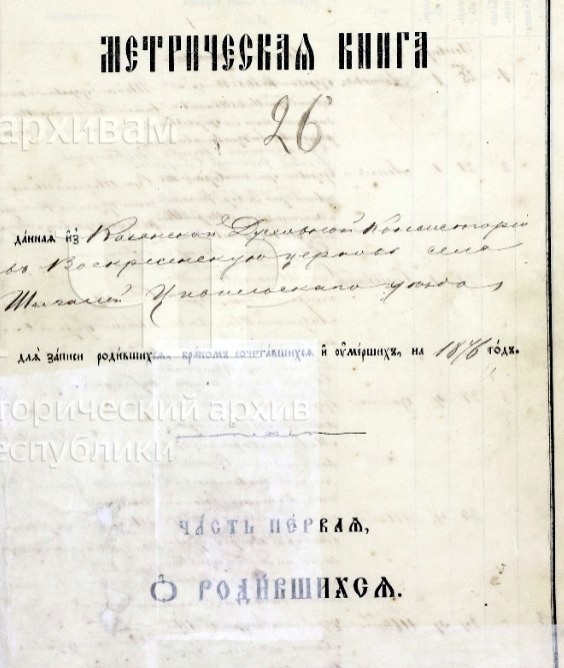 МЕТРИЧЕСКАѦ КНИГА
26
архивам
да́ннаѧ и҆зъ Казанской Духовной Консисторіи
въ Воскресенскую церковь села
Шигалей Цивильскаго уѣзда,
длѧ̀ за́писи роди́вшихсѧ, бра́комъ сочета́вшихсѧ и҆ ᲂу҆ме́ршихъ, на 1876 го́дъ.
торический архив
еспублики
ЧА́СТЬ ПЕ́РВАѦ,
Ѻ҆ РОДИ́ВШИХСѦ.